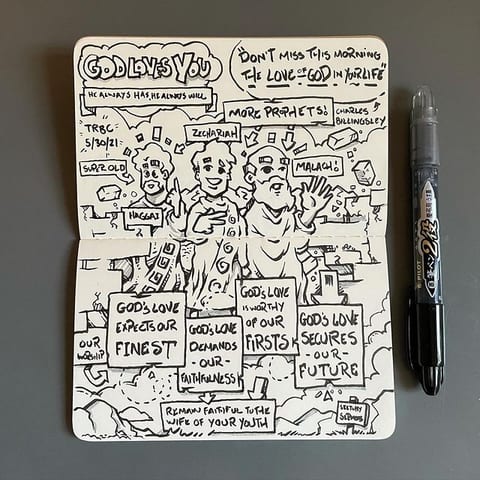 GOD LOVES YOU
HE ALWAYS HAS, HE ALWAYS WILL
"DON'T MISS THIS MORNING
THE LOVE OF GOD IN YOUR LIFE"
TRBC-
5/30/21
MORE PROPHETS!
CHARLES
BILLINGSLEY
ZECHARIAH
SUPER OLD
MALACHI
HAGGAI
GOD'S LOVE
EXPECTS OUR
FINEST
GOD'S LOVE
DEMANDS
-OUR-
FAITHFULNESS
GOD'S LOVE
IS WORTHY
OF OUR
FIRSTS
GOD'S LOVE
SECURES
-OUR-
FUTURE
OUR
WORSHIP
REMAIN FAITHFUL TO THE
WIFE OF YOUR YOUTH
SKETCHY
SERMONS
PILOT